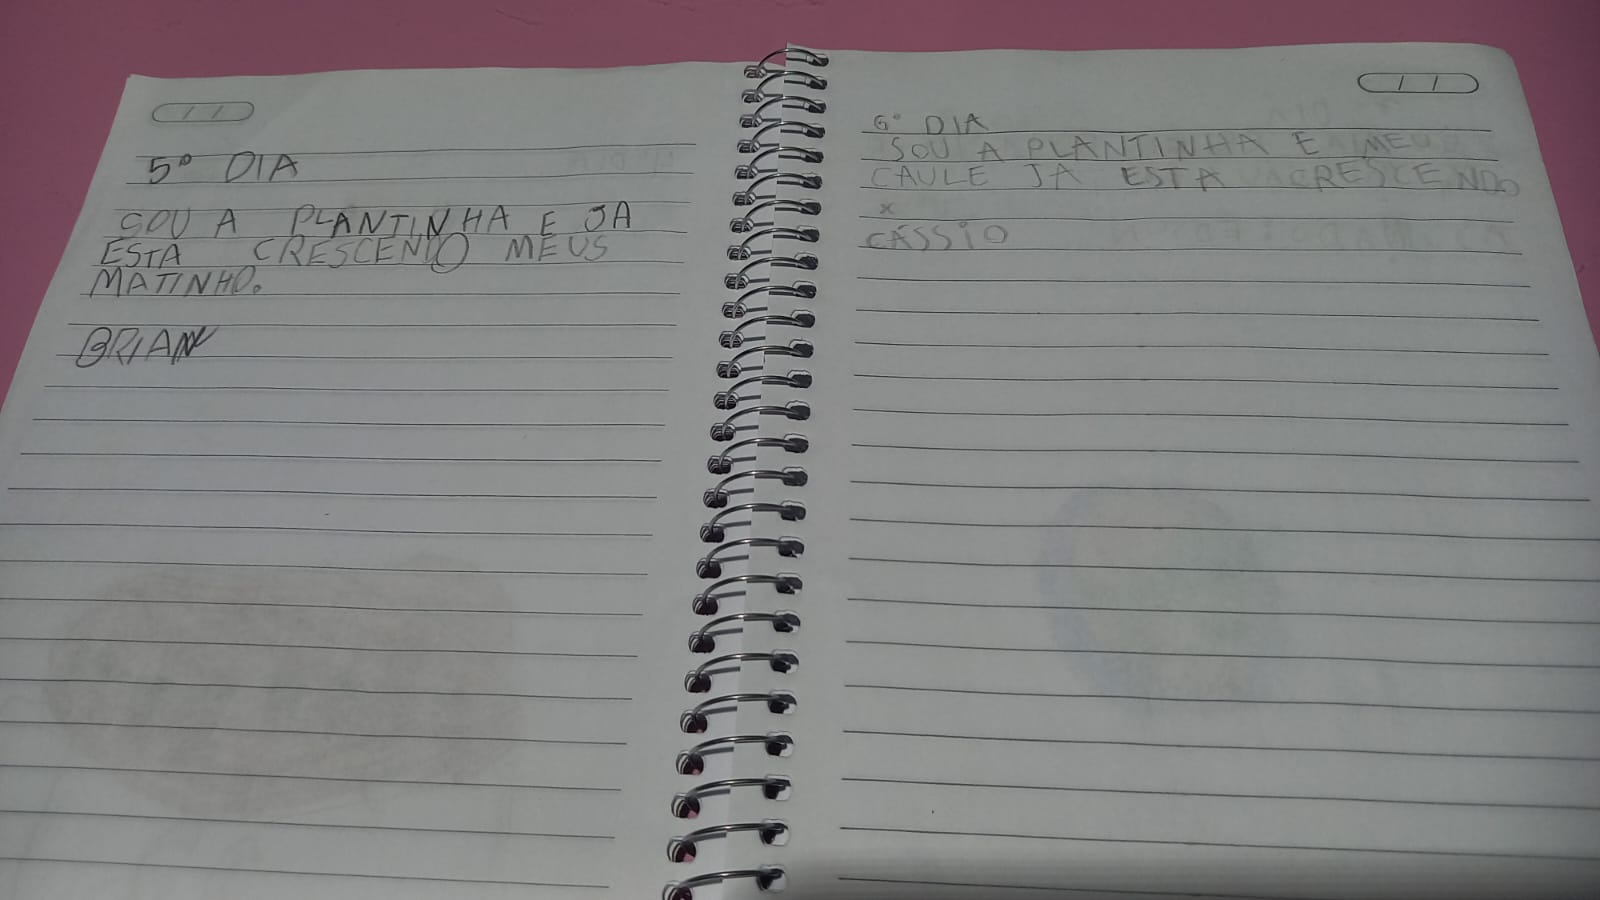 5º DIA
SOU A PLANTINHA E JA
ESTA CRESCENDO MEUS
MATINHO.
BRIAN
6º DIA
SOU A PLANTINHA E MEU
CAULE JA ESTA CRESCENDO
x
CÁSSIO